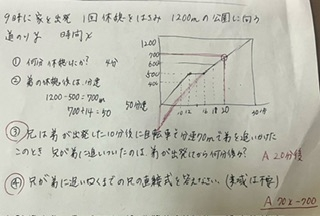 9時に家を出発 1回休憩をはさみ 1200mの公園に向う
道のりy 時間x
① 何分休憩したか? 4分
② 弟の休憩後は 分速
1200-500=700m
700÷14=50
50分速
1200
700
600
500
400
10 12 16 18 20 30分
③ 兄は弟が出発した10分後に自転車で分速70mで弟を追いかけた
このとき 兄が弟に追いついたのは 弟が出発してから何分後か?
A 20分後
④ 兄が弟に追いつくまでの兄の直線式を答えなさい。(変域は不要)
A 70x-700